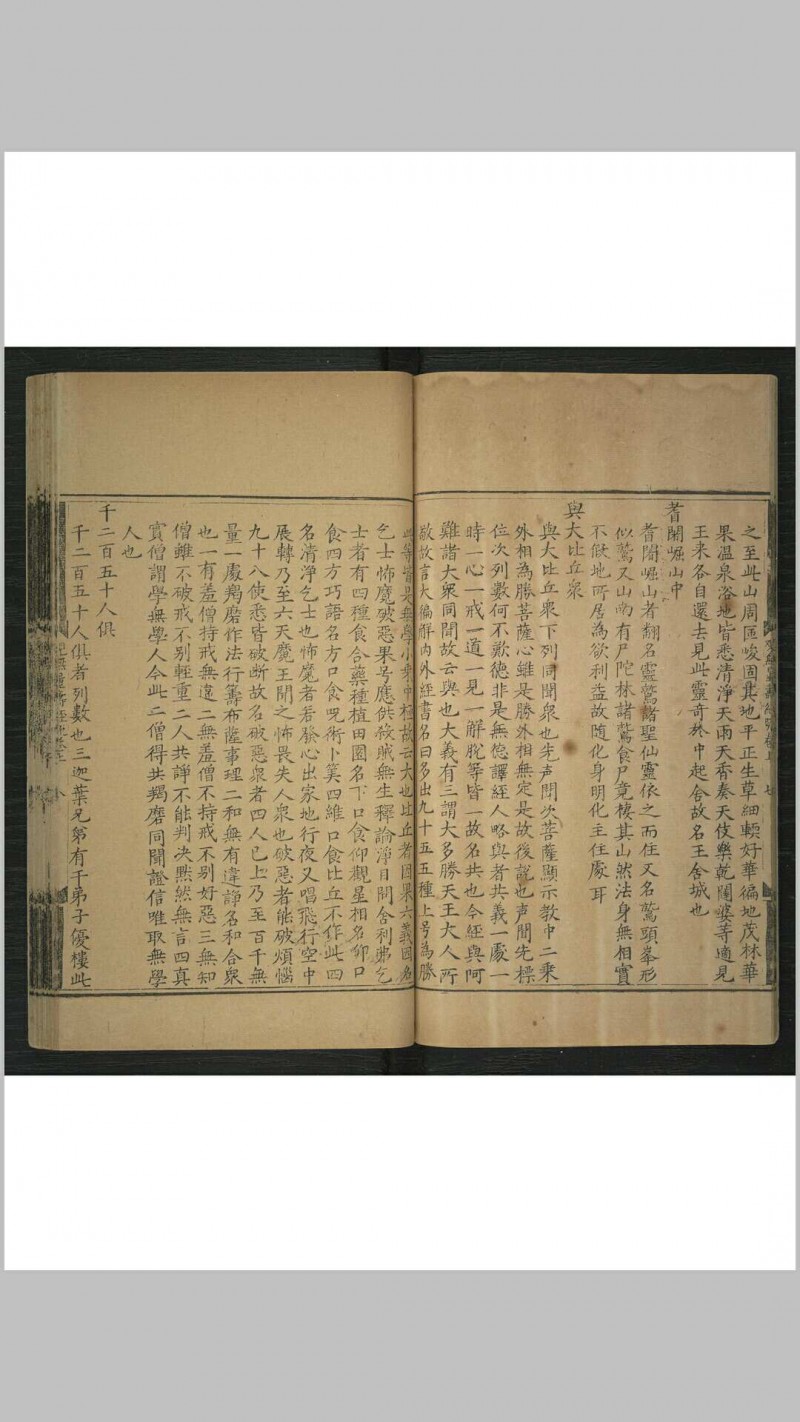 之至此山周匝峻固其地平正生草細輭好華徧地茂林華
果溫泉浴地皆悉清淨天雨天香奏天伎樂乾闥婆等適見
王来各自還去見此靈竒於中起舍故名王舍城也
耆闍崛山中
耆闍崛山者翻名靈鷲諸聖仙靈依之而住又名鷲頭峯形
似鷲又山南有尸陀林諸鷲食尸竟棲其山然法身無相實
不假地所居為欲利益故随化身明化主住處耳
與大比丘衆
與大比丘衆下列同聞衆也先声聞次菩薩顯示教中二乗
外相為勝菩薩心雖是勝外相無定是故後說也声聞先標
位次列數何不歎德非是無德譯經人略與者共義一處一
時一心一戒一道一見一解脫等皆一故名共也今經與阿
難諸大衆同聞故云與也大義有三謂大多勝天王大人所
敬故言大徧解内外經書名曰多出九十五種上号為勝
此等皆是無學小乘中極故云大也比丘者因果六義因名
乞士怖魔破悪果号應供殺賊無生釋論淨目問舍利弗乞
士者有四種食合藥種植田園名下口食仰觀星相名仰口
食四方巧語名方口食呪術卜筭四維口食比丘不作此四
名清淨乞士也怖魔者若發心出家地行夜叉唱飛行空中
展轉乃至六天魔王聞之怖畏失人衆也破惡者能破煩惱
九十八使悉皆破斷故名破惡衆者四人已上乃至百千無
量一處羯磨作法行籌布薩事理二和無有違諍名和合衆
也一有羞僧持戒無違二無羞僧不持戒不别好惡三無知
僧雖不破戒不别輕重二人共諍不能判决黙然無言四真
實僧謂學無學人今此二僧得共羯磨同聞證信唯取無學
人也
千二百五十人俱
千二百五十人俱者列數也三迦葉兄弟有千弟子優樓此